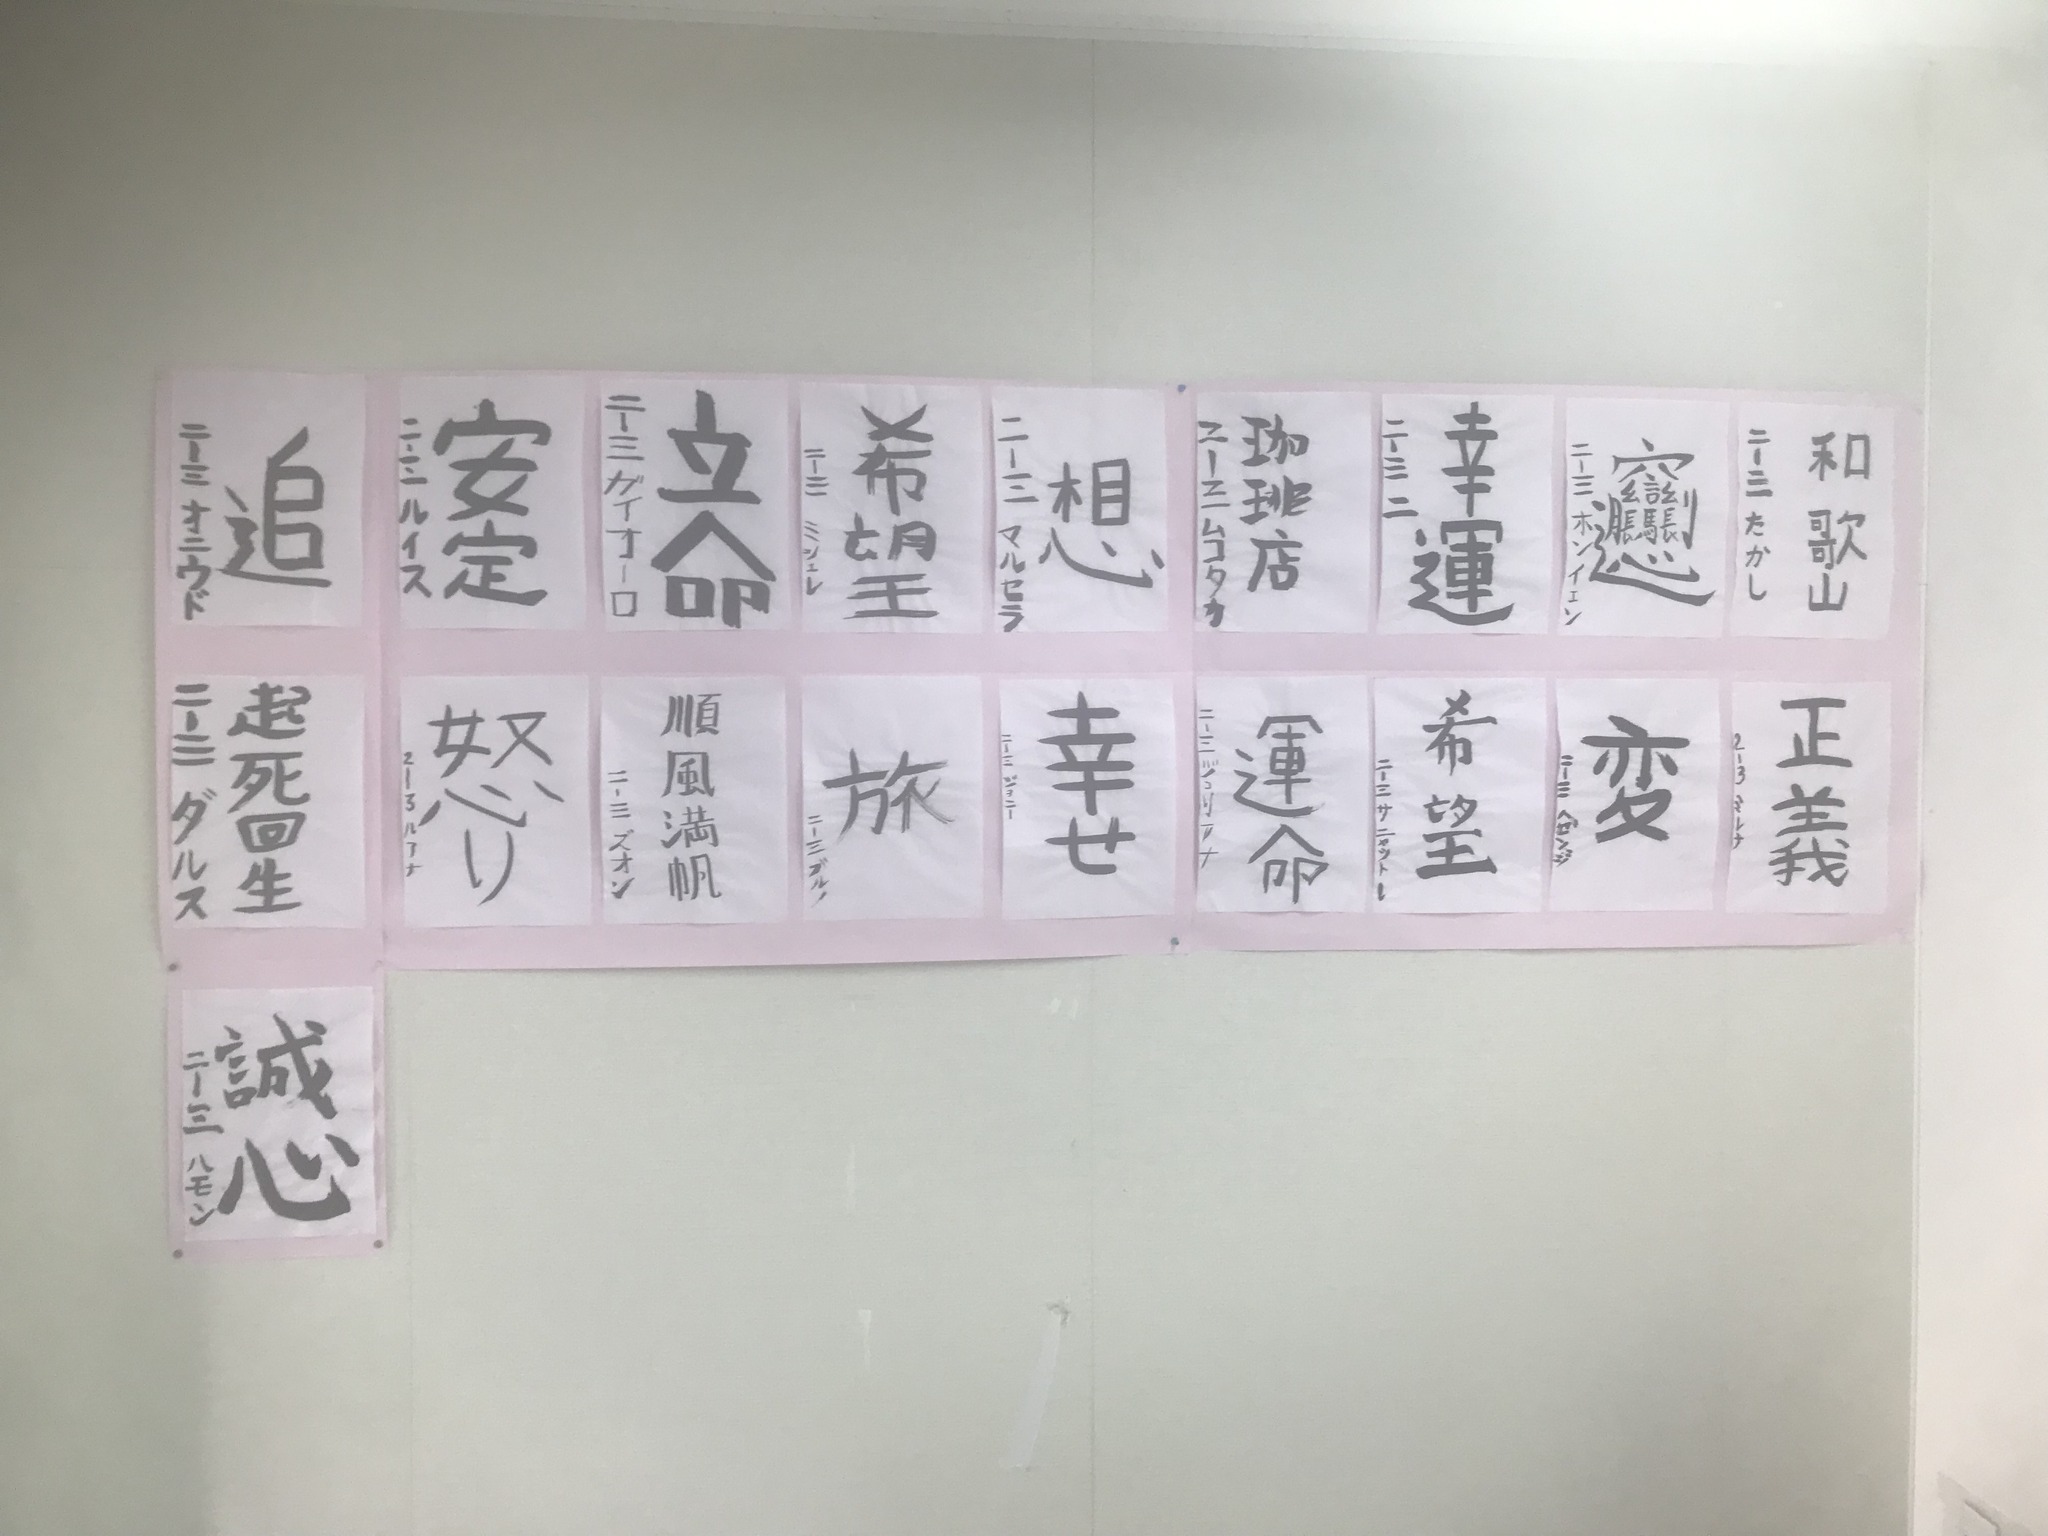 和歌山
二ー三 たかし
二ー三 ホンイェン
幸運
二ー三 二
珈琲店
二ー三 ムコタカ
想
二ー三 マルセラ
希望
二ー三 ミシェレ
立命
二ー三 ガイオーロ
安定
二ー二 ルイス
追
二ー三 オニウド
正義
2ー3 ミレナ
変
二ー三 ヘゼンジ
希望
二ー三 サニャットレ
運命
二ー三 ジュリアナ
幸せ
二ー三 ジョニー
旅
二ー三
順風満帆
二ー三 ズオン
怒り
2ー3 ルアナ
起死回生
二ー三 ダルス
誠心
二ー三 ハモン